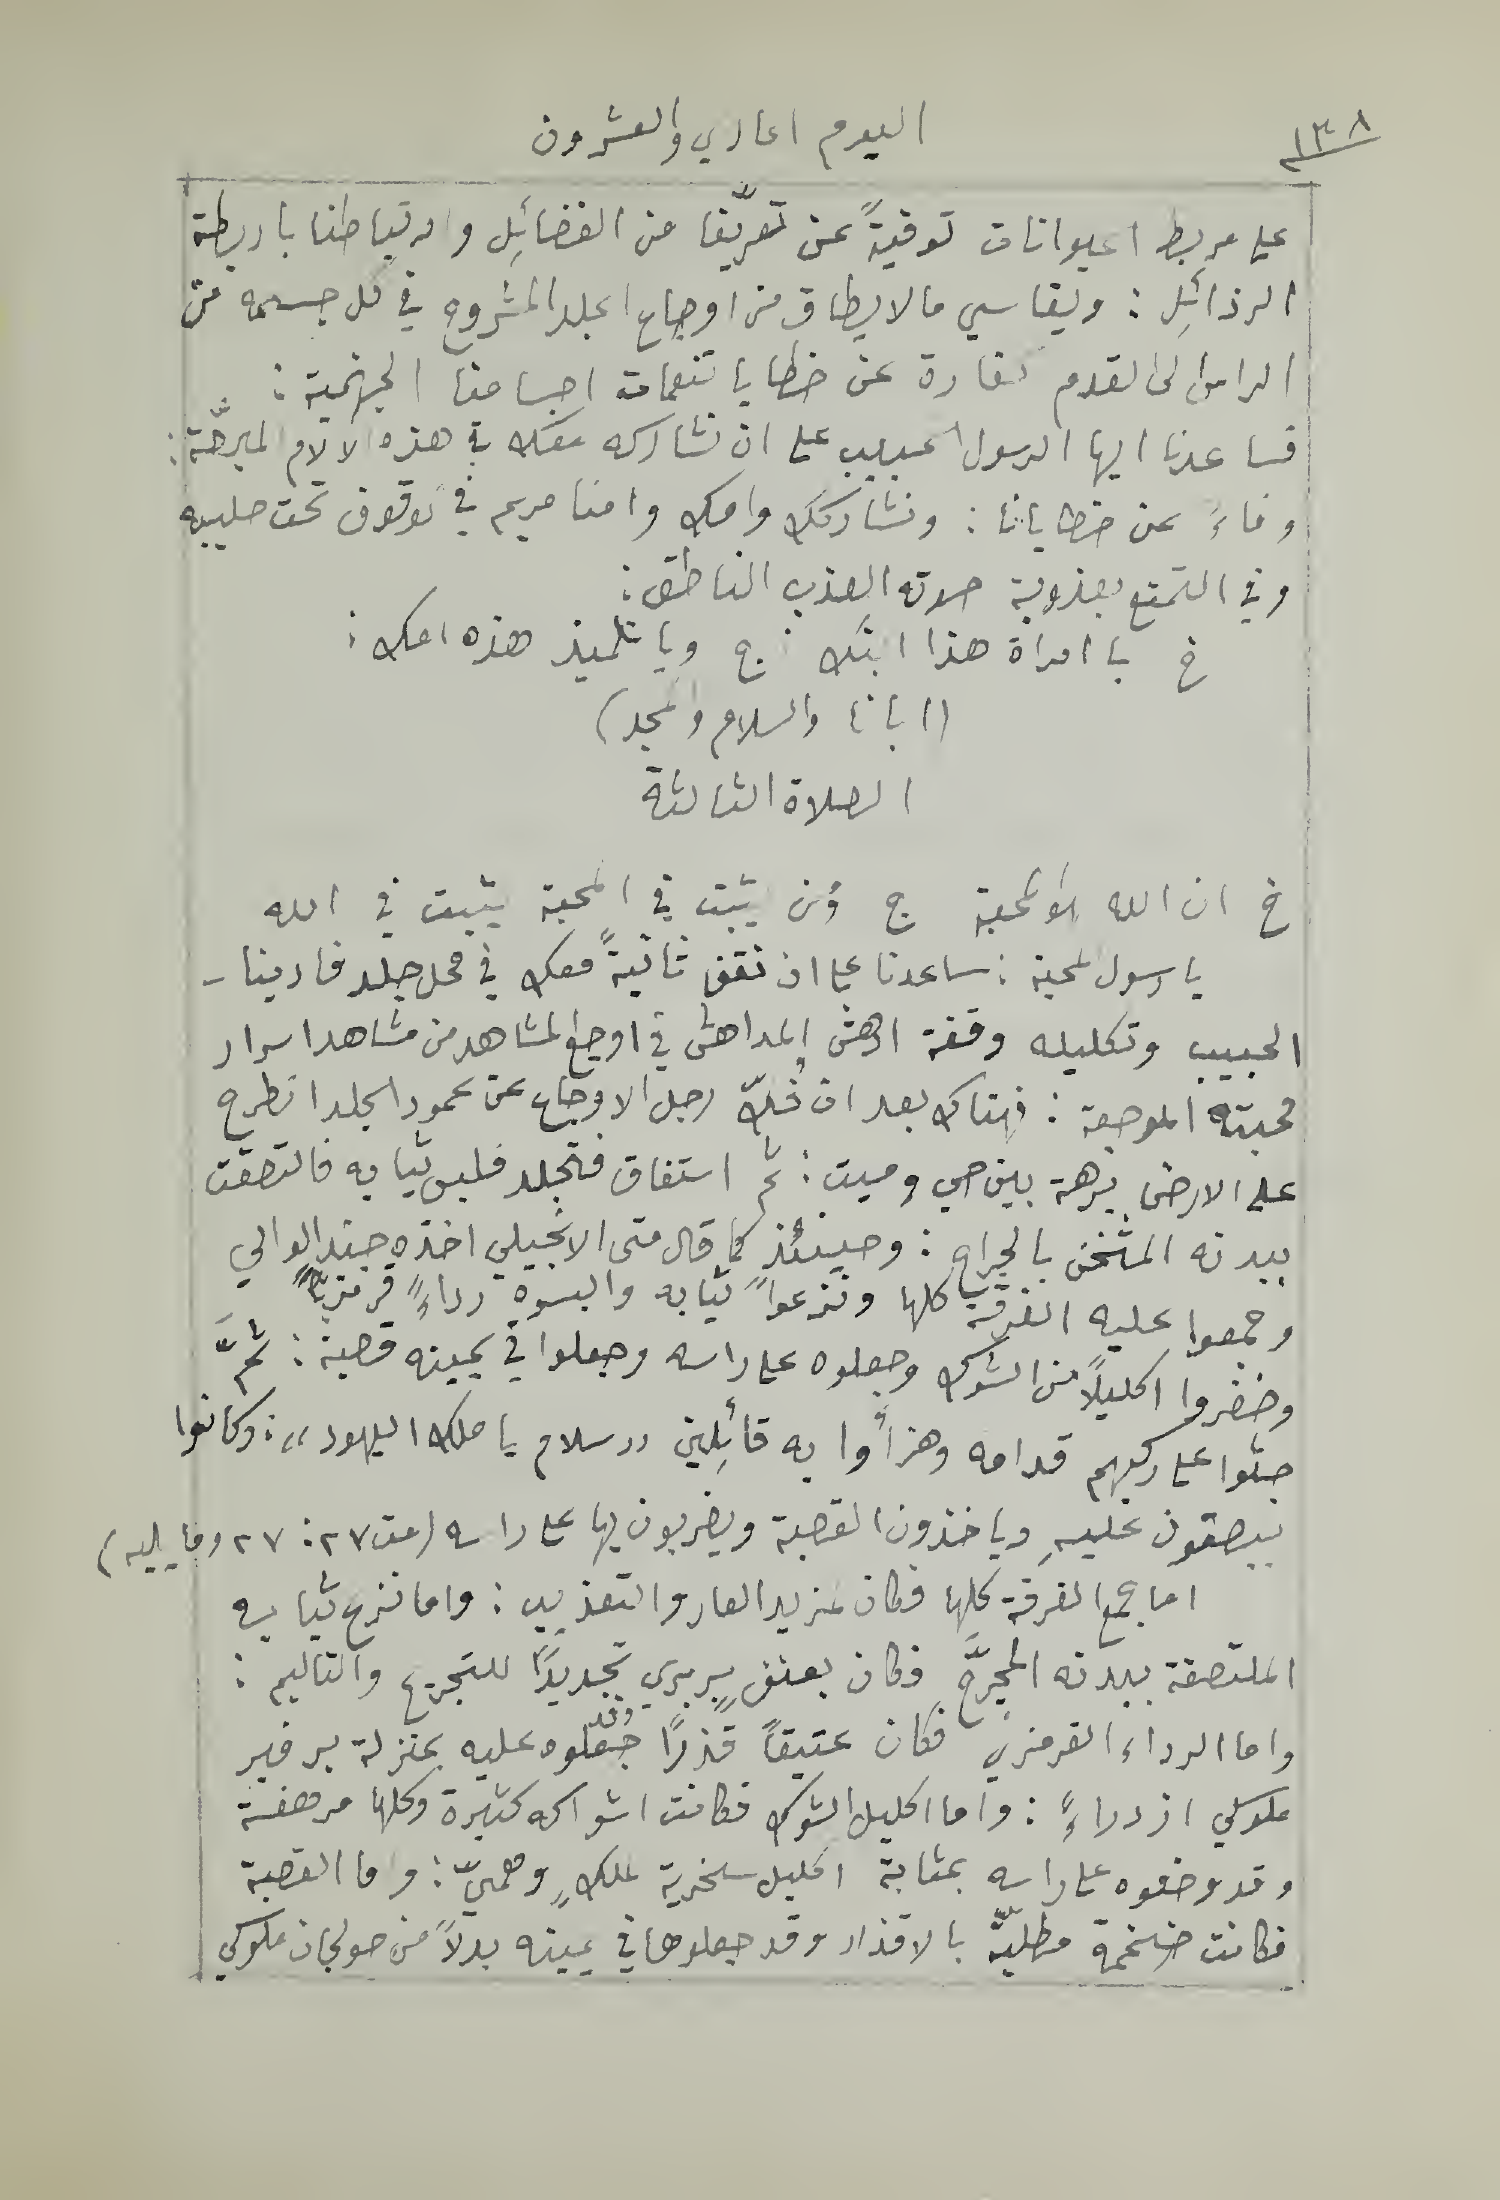 ١٣٨
اليوم الحادي والعشرون
على مربط الحيوانات توقيةً عن تعرّينا من الفضائِل وارتباطنا باربطة
الرذائِل : ويقاسي مالا يطاق من اوجاع الجلد المشروح في كل جسمه من
الراس الى القدم كفارة عن خطايا تنعمات اجسامنا الجهنمية :
فساعدنا ايها الرسول الحبيب على ان نشاركه معك في هذه الالام المبرحّة :
وفاءً عن خطايانا : ونشاركك وامك وامنا مريم في الوقوف تحت صليبه
وفي التمتع بعذوبة صوته العذب الناطق :
خ يا امراة هذا ابنك : ج ويا تلميذ هذه امك :
(ابانا والسلام والمجد)
الصلاة الثالثة
خ ان الله هو المحبة ج ومن يثبت في المحبة يثبت في الله
يا رسول المحبة : ساعدنا على ان نقف ثانيةً معك في محل جلد فادينا
الحبيب وتكليله وقفة ادهش المداهش في اوجع المشاهد من مشاهد اسرار
محبته الموجعة : فهناك بعد ان فُكّ رجل الاوجاع عن عمود الجلد انطرح
على الارض برهة بين حي وميت : ثم استفاق فتجلد فلبس ثيابه فالتصقت
ببدنه المثخن بالجراح : وحينئذٍ كما قال متى الانجيلي اخذه جند الوالي
وجمعوا عليه الفرقة كلها ونزعوا ثيابه والبسوه رداءً قرمزيّاً
وضفروا اكليلاً من الشوك وجعلوه على راسه وجعلوا في يمينه قصبة : ثمَّ
جثوا على ركبهم قدامه وهزأُوا به قائِلين ,, سلام يا ملك اليهود ,, : وكانوا
يبصقون عليهِ وياخذون القصبة ويضربون بها على راسه (مت ٢٧ : ٢٧ وما يليه)
اما جمع الفرقة كلها فكان لمزيد العار والتعذيب : واما نزع ثيابه
الملتصقة ببدنه المجرَّح فكان بعنفٍ بربريٍ تجديدًا للتجريح والتاليم :
واما الرداء القرمزي فكان عتيقاً قذرًا وقد جعلوه عليه بمنزلة برفير
ملوكي ازدراءً : واما اكليل الشوك فكانت اشواكه كثيرة وكلها مرهفة
وقد وضعوه على راسه بمثابة اكليل سخرية لملكٍ وهميّ : واما القصبة
فكانت ضخمة مطليّة بالاقذار وقد جعلوها في يمينه بدلاً من صولجان ملوكي